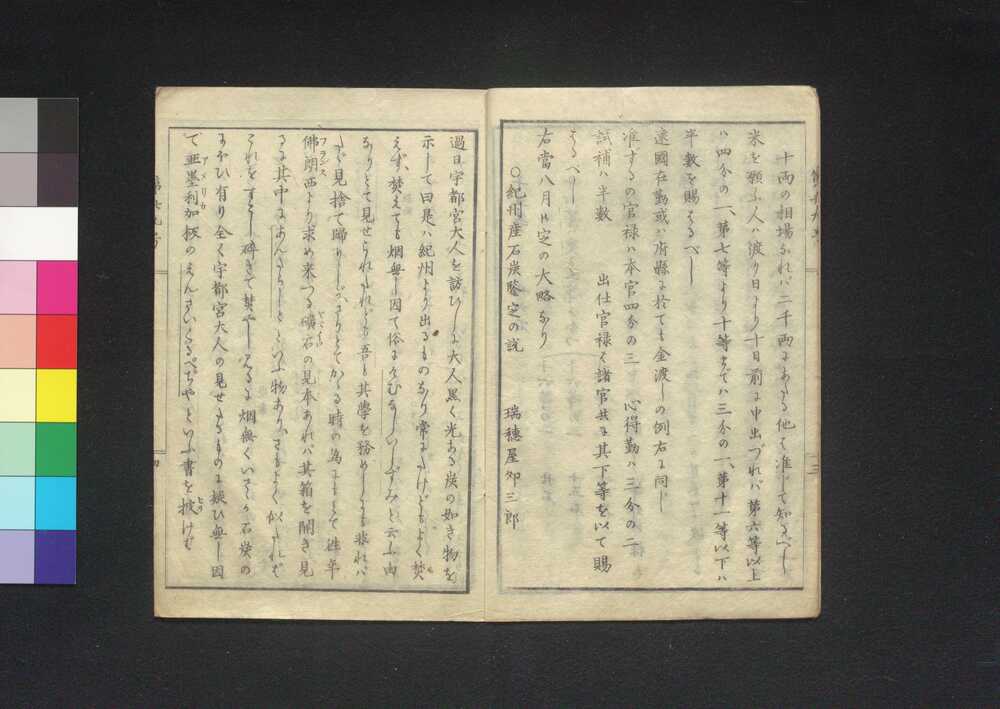 十両の相場なれバ二千両にあたる他は准じて知るべし
米を願ふ人ハ渡り日より十日前に申出づれバ第六等以上
ハ四分の一、第七等より十等までハ三分の一、第十一等以下ハ
半数を賜はるべし
遠國在勤或ハ府縣に於ても金渡しの例右に同じ
准ずるの官禄ハ本官四分の三 心得勤ハ三分の二
試補ハ半数 出仕官禄は諸官共に其下等を以て賜
はるべし
右當八月中定の大略なり
○紀州産石炭鑒定の説 瑞穂屋卯三郎
過日宇都宮大人を訪ひしに大人黒く光ある炭の如き物を
示して曰是ハ紀州より出るものなり常にたけどもよく焚
えず、焚えても烟無し因て俗にけむなしいしずみと云ふ由
なりとて見せられたれども吾し其學を務めしにも非れバ
たゞ見捨て歸りしがさりとてかゝる時の為にもとて往年
佛朗西より求め来つる礦石の見本あれバ其箱を開き見
フランス
るに其中にあんたらしとといふ物ありさもよく似たれば
これをすこし砕きて焚やしみるに烟無くいさゝか石炭の
にほひ有り全く宇都宮大人の見せたるものに疑ひ無し因
て亜墨利加板のえんさいくろぺぢやといふ書を披けば
アメリカ
ひら